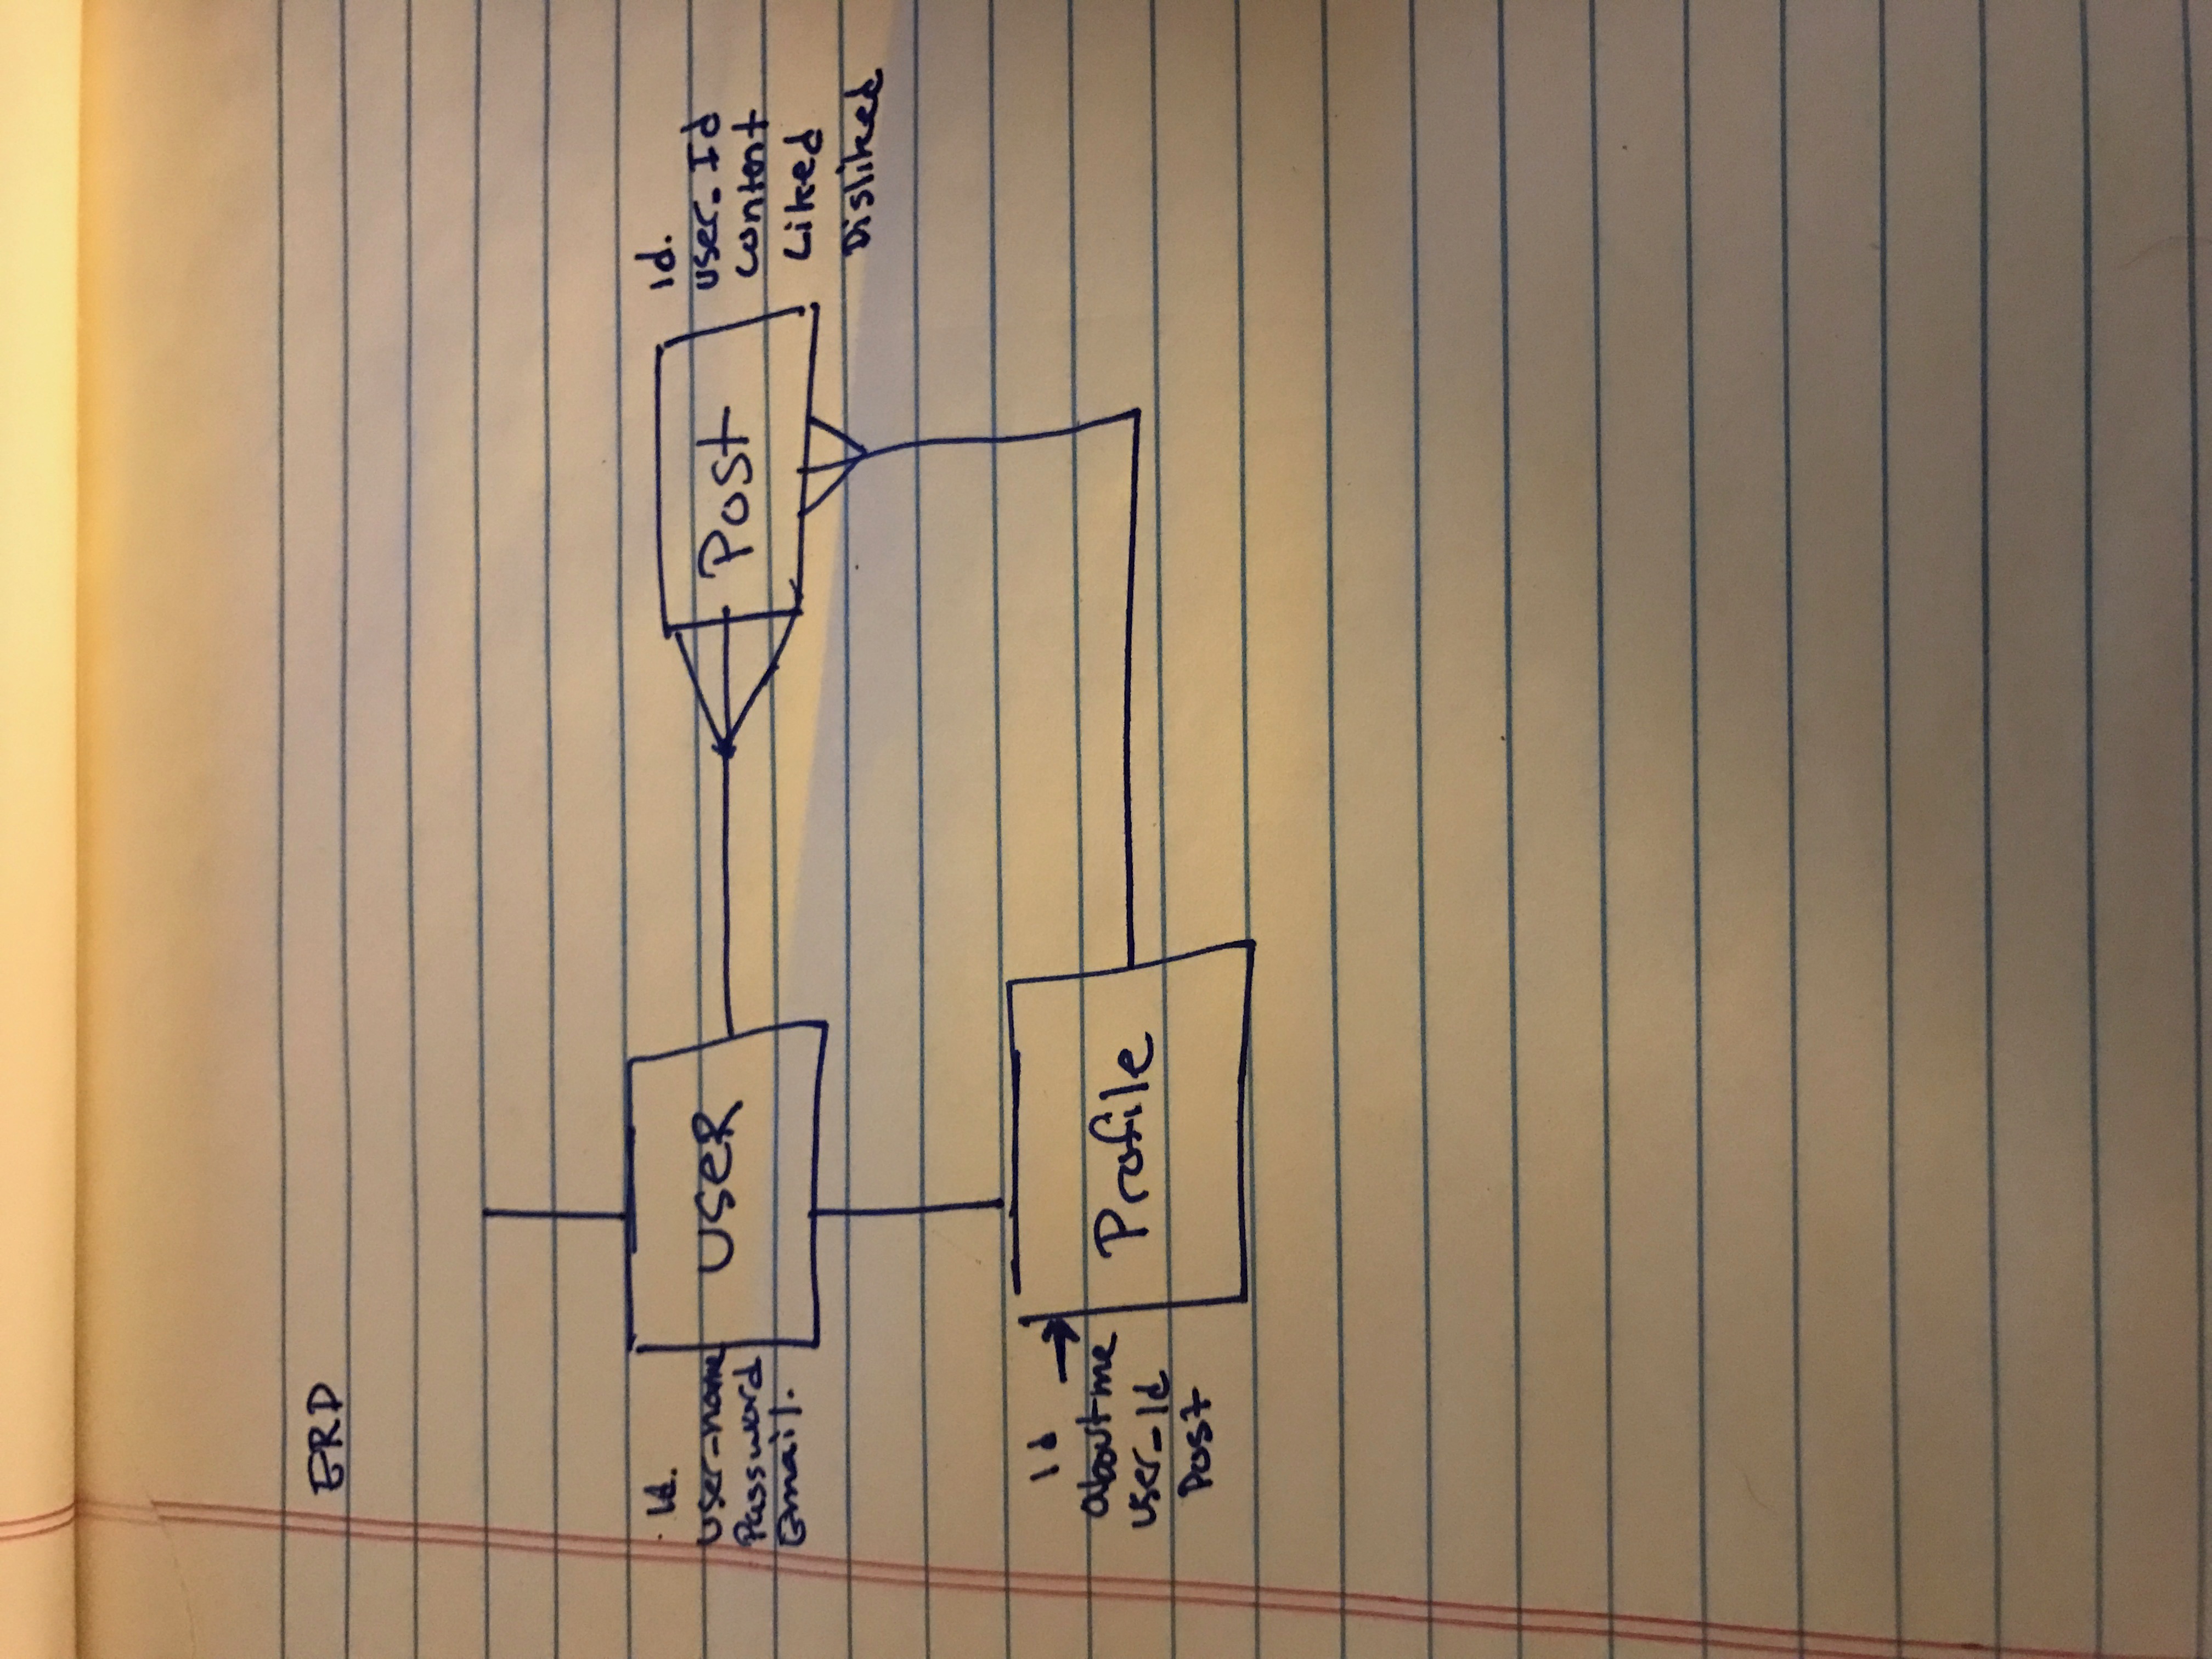 ERD
Id.
User-name
Password
Email.
USER
Post
Id.
User-Id
Content
Liked
Disliked
Id
About me
User-Id
Post
Profile